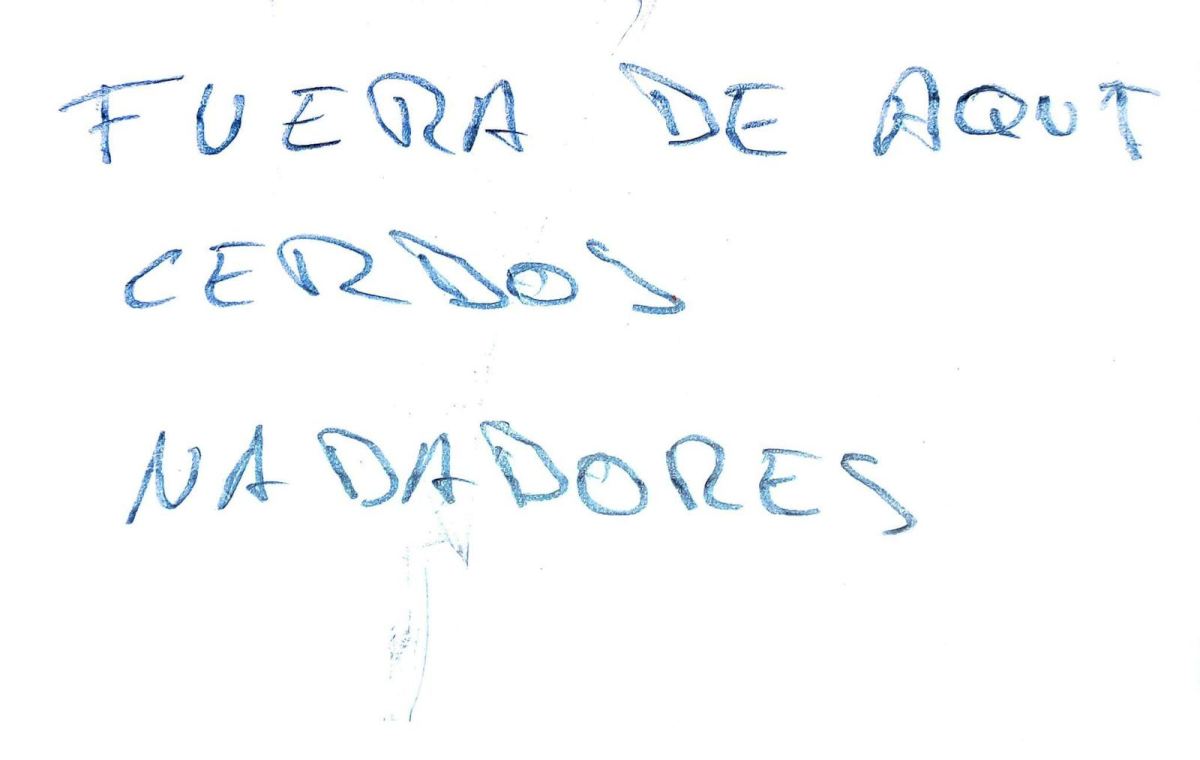 FUERA DE AQUI
CERDOS
NADADORES